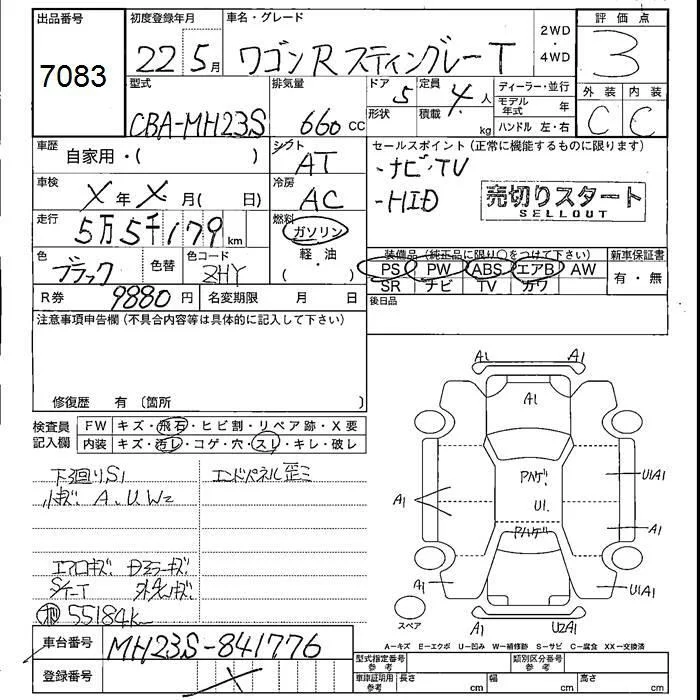 出品番号
7083
初度登録年月
22 5月
車名・グレード
ワゴンR スティングレー T
2WD
・
4WD
評価点
3
型式
CBA-MH23S
排気量
660 CC
ドア 5
定員 4人
形状
積載 kg
ディーラー・並行
モデル年式 年
ハンドル 左・右
外装 内装
C C
車歴
自家用・( )
シフト
AT
セールスポイント (正常に機能するものに限ります)
・ナビ・TV
・HID
売切りスタート
SELLOUT
車検
X年 X月( 日)
冷房
AC
走行
5万5千179km
燃料
ガソリン
軽・油
( )
色
ブラック
色替
色コード
ZHY
装備品 (純正品に限り○をつけて下さい)
PS PW ABS エアB AW
SR ナビ TV カワ
新車保証書
有・無
R券 9880円
名変期限 月 日
後日品
注意事項申告欄 (不具合内容等は具体的に記入して下さい)
修復歴 有 〔箇所 〕
検査員
記入欄
FW キズ・飛石・ヒビ割・リペア跡・X要
内装 キズ・汚レ・コゲ・穴・スレ・キレ・破レ
下廻りS1
エンドパネル歪ミ
小キズ A.U.W2
エアロキズ
シート
55184k
A1 A1
A1
U1
U1A1
A1
A1
A1
U1A1
スペア
A1
U2A1
A－キズ E－エクボ U－凹み W－補修跡 S－サビ C－腐食 XX－交換済
車台番号
MH23S-841776
登録番号
X
型式指定番号
参考
類別区分番号
参考
車庫証明用
参考
長さ cm
幅 cm
高さ cm